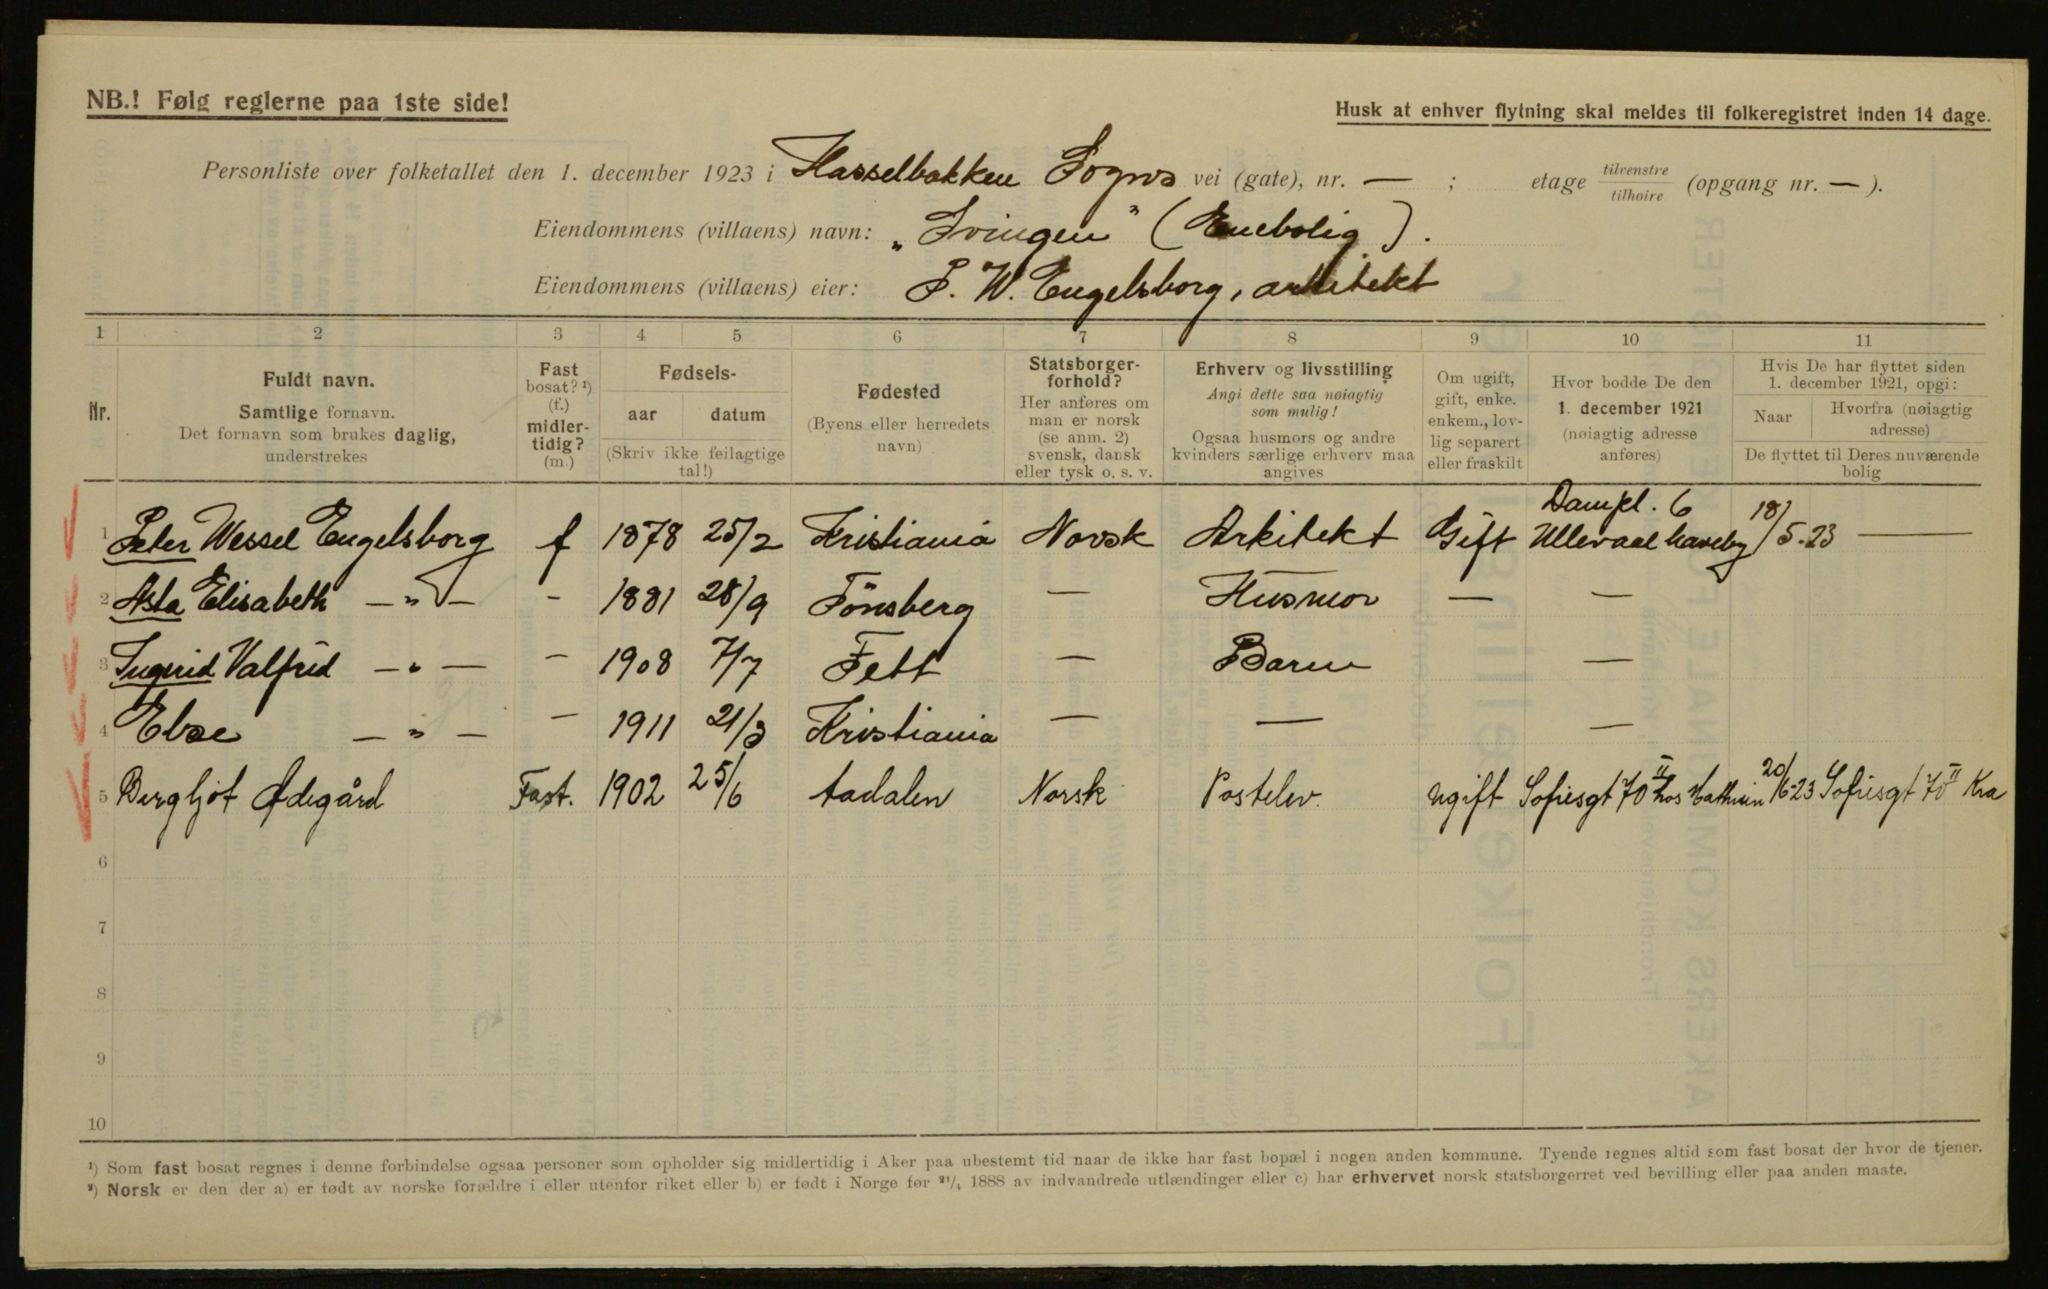 NB.! Følg reglerne paa 1ste side!
Husk at enhver flytning skal meldes til folkeregistret inden 14 dage.
Personliste over folketallet den 1. december 1923 i Hasselbakken Sogns vei (gate), nr. — ; etage tilvenstre tilhøire (opgang nr. — ).
Eiendommens (villaens) navn: „Svingen" (Enebolig).
Eiendommens (villaens) eier: P. W. Engelsborg, arkitekt
1 2 3 4 5 6 7 8 9 10 11
Nr.
Fuldt navn.
Samtlige fornavn.
Det fornavn som brukes daglig,
understrekes
Fast
bosat? ¹)
(f.)
midler-
tidig?
(m.)
Fødsels-
aar datum
(Skriv ikke feilagtige
tal!)
Fødested
(Byens eller herredets
navn)
Statsborger-
forhold?
Her anføres om
man er norsk
(se anm. 2)
svensk, dansk
eller tysk o. s. v.
Erhverv og livsstilling
Angi dette saa nøiagtig
som mulig!
Ogsaa husmors og andre
kvinders særlige erhverv maa
angives
Om ugift,
gift, enke.
enkem., lov-
lig separert
eller fraskilt
Hvor bodde De den
1. december 1921
(nøiagtig adresse
anføres)
Hvis De har flyttet siden
1. december 1921, opgi:
Naar Hvorfra (nøiagtig
adresse)
De flyttet til Deres nuværende
bolig
1 Peter Wessel Engelsborg f 1878 25/2 Kristiania Norsk Arkitekt Gift Dampl. 6 Ullevaal haveby 18/5.23 —
2 Asta Elisabeth — „ — - 1881 28/9 Tönsberg — Husmor — —
3 Ingrid Valfrid — „ — - 1908 7/7 Tett — Barn —
4 Ebse — „ — - 1911 21/3 Kristiania — — —
5 Bergljot Ødegård Fast. 1902 25/6 Aadalen Norsk Postelev. ugift Sofiesgt 70 II hos 20/6-23 Sofiesgt 70 II Kra
6
7
8
9
10
¹) Som fast bosat regnes i denne forbindelse ogsaa personer som opholder sig midlertidig i Aker paa ubestemt tid naar de ikke har fast bopæl i nogen anden kommune. Tyende regnes altid som fast bosat der hvor de tjener.
²) Norsk er den der a) er født av norske forældre i eller utenfor riket eller b) er født i Norge før ²¹/₄ 1888 av indvandrede utlændinger eller c) har erhvervet norsk statsborgerret ved bevilling eller paa anden maate.